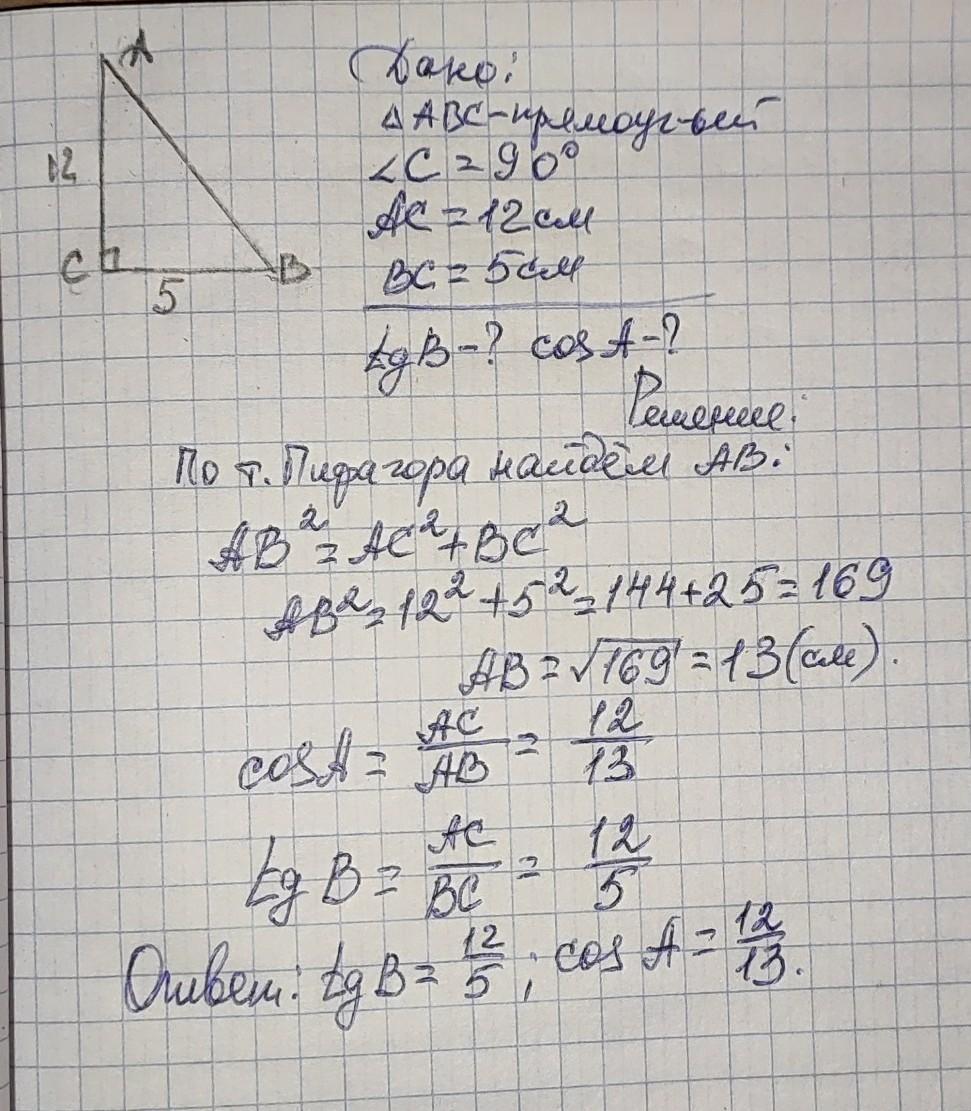 A
12
C
5
B
Дано:
△ABC-прямоуг-ый
∠C = 90°
AC = 12 см
BC = 5 см
tg B - ? cos A - ?
Решение:
По т. Пифагора найдём AB:
AB² = AC² + BC²
AB² = 12² + 5² = 144 + 25 = 169
AB = √169 = 13 (см).
cos A = AC/AB = 12/13
tg B = AC/BC = 12/5
Ответ: tg B = 12/5; cos A = 12/13.